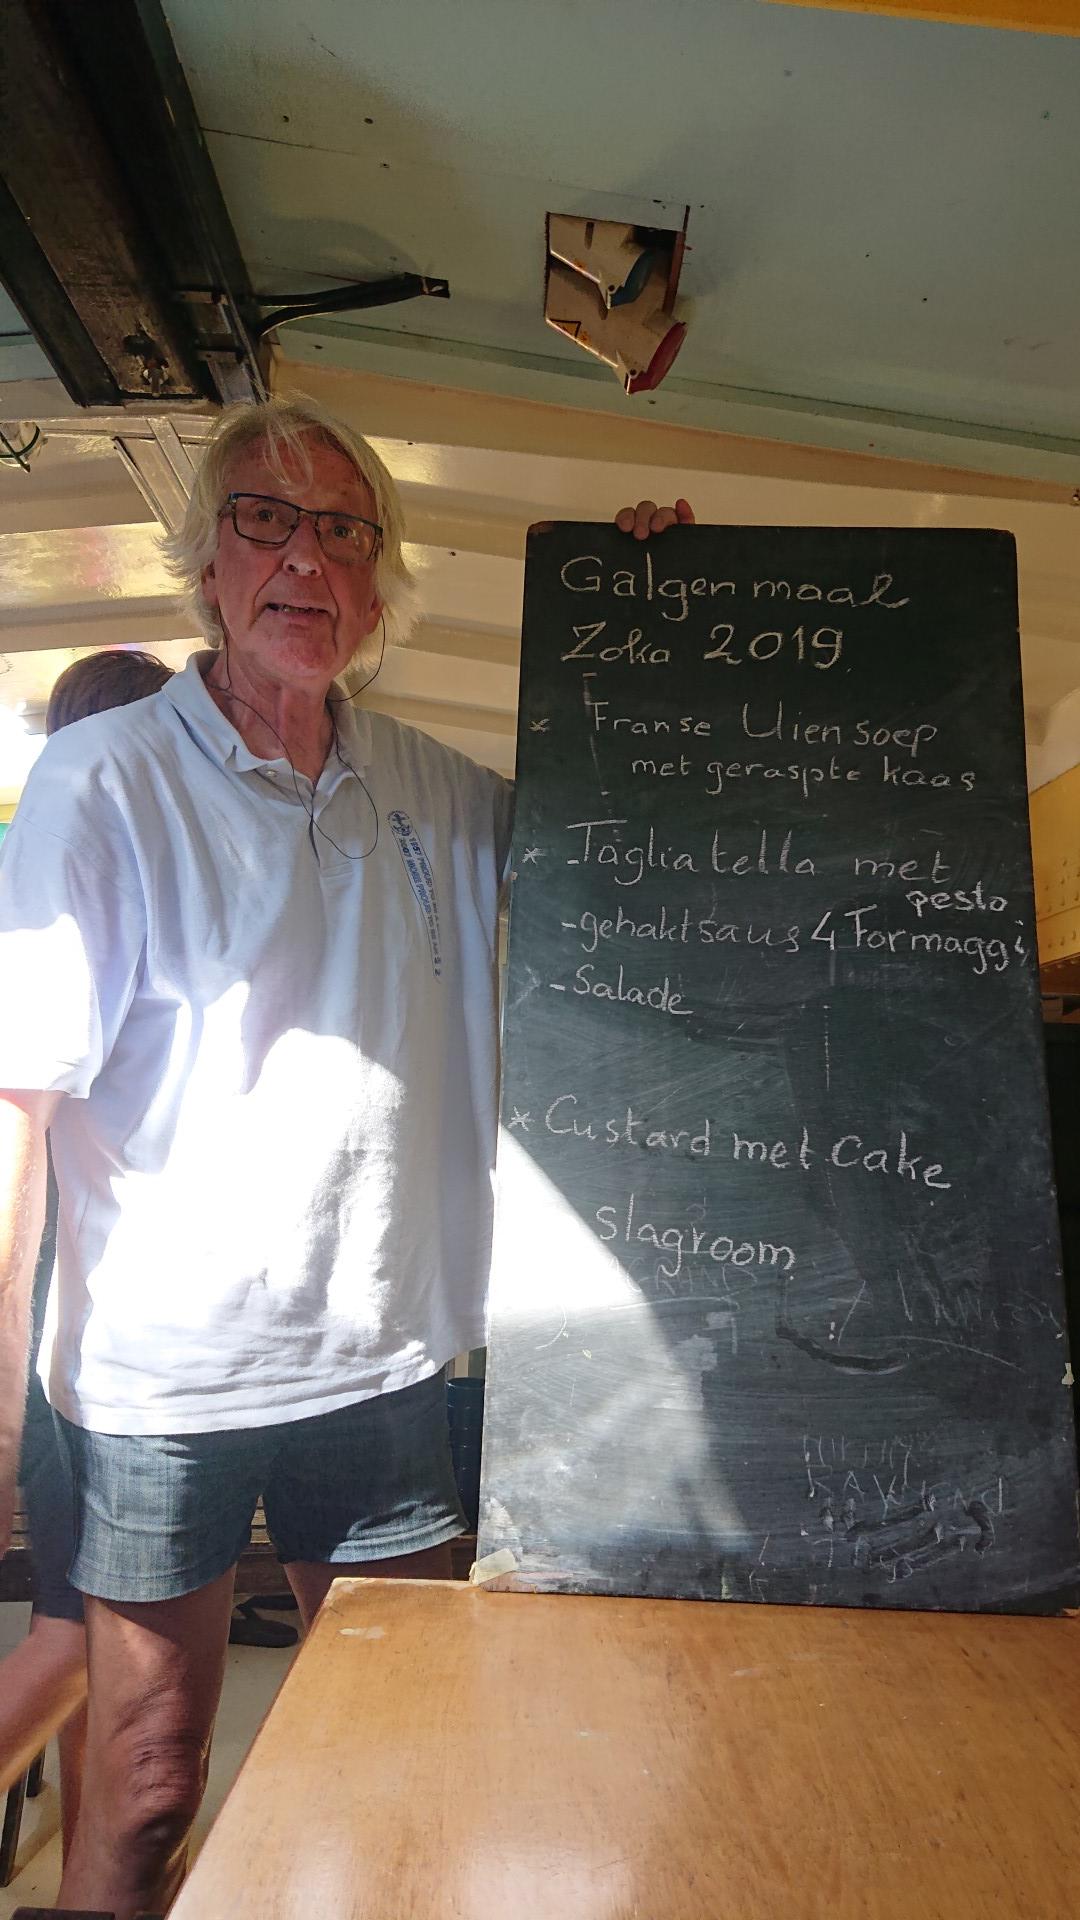 Galgenmaal
Zoka 2019
* Franse Uiensoep
met geraspte kaas
* -Tagliatella met
pesto
-gehaktsaus 4 Formaggi
-Salade
* Custard met Cake
slagroom